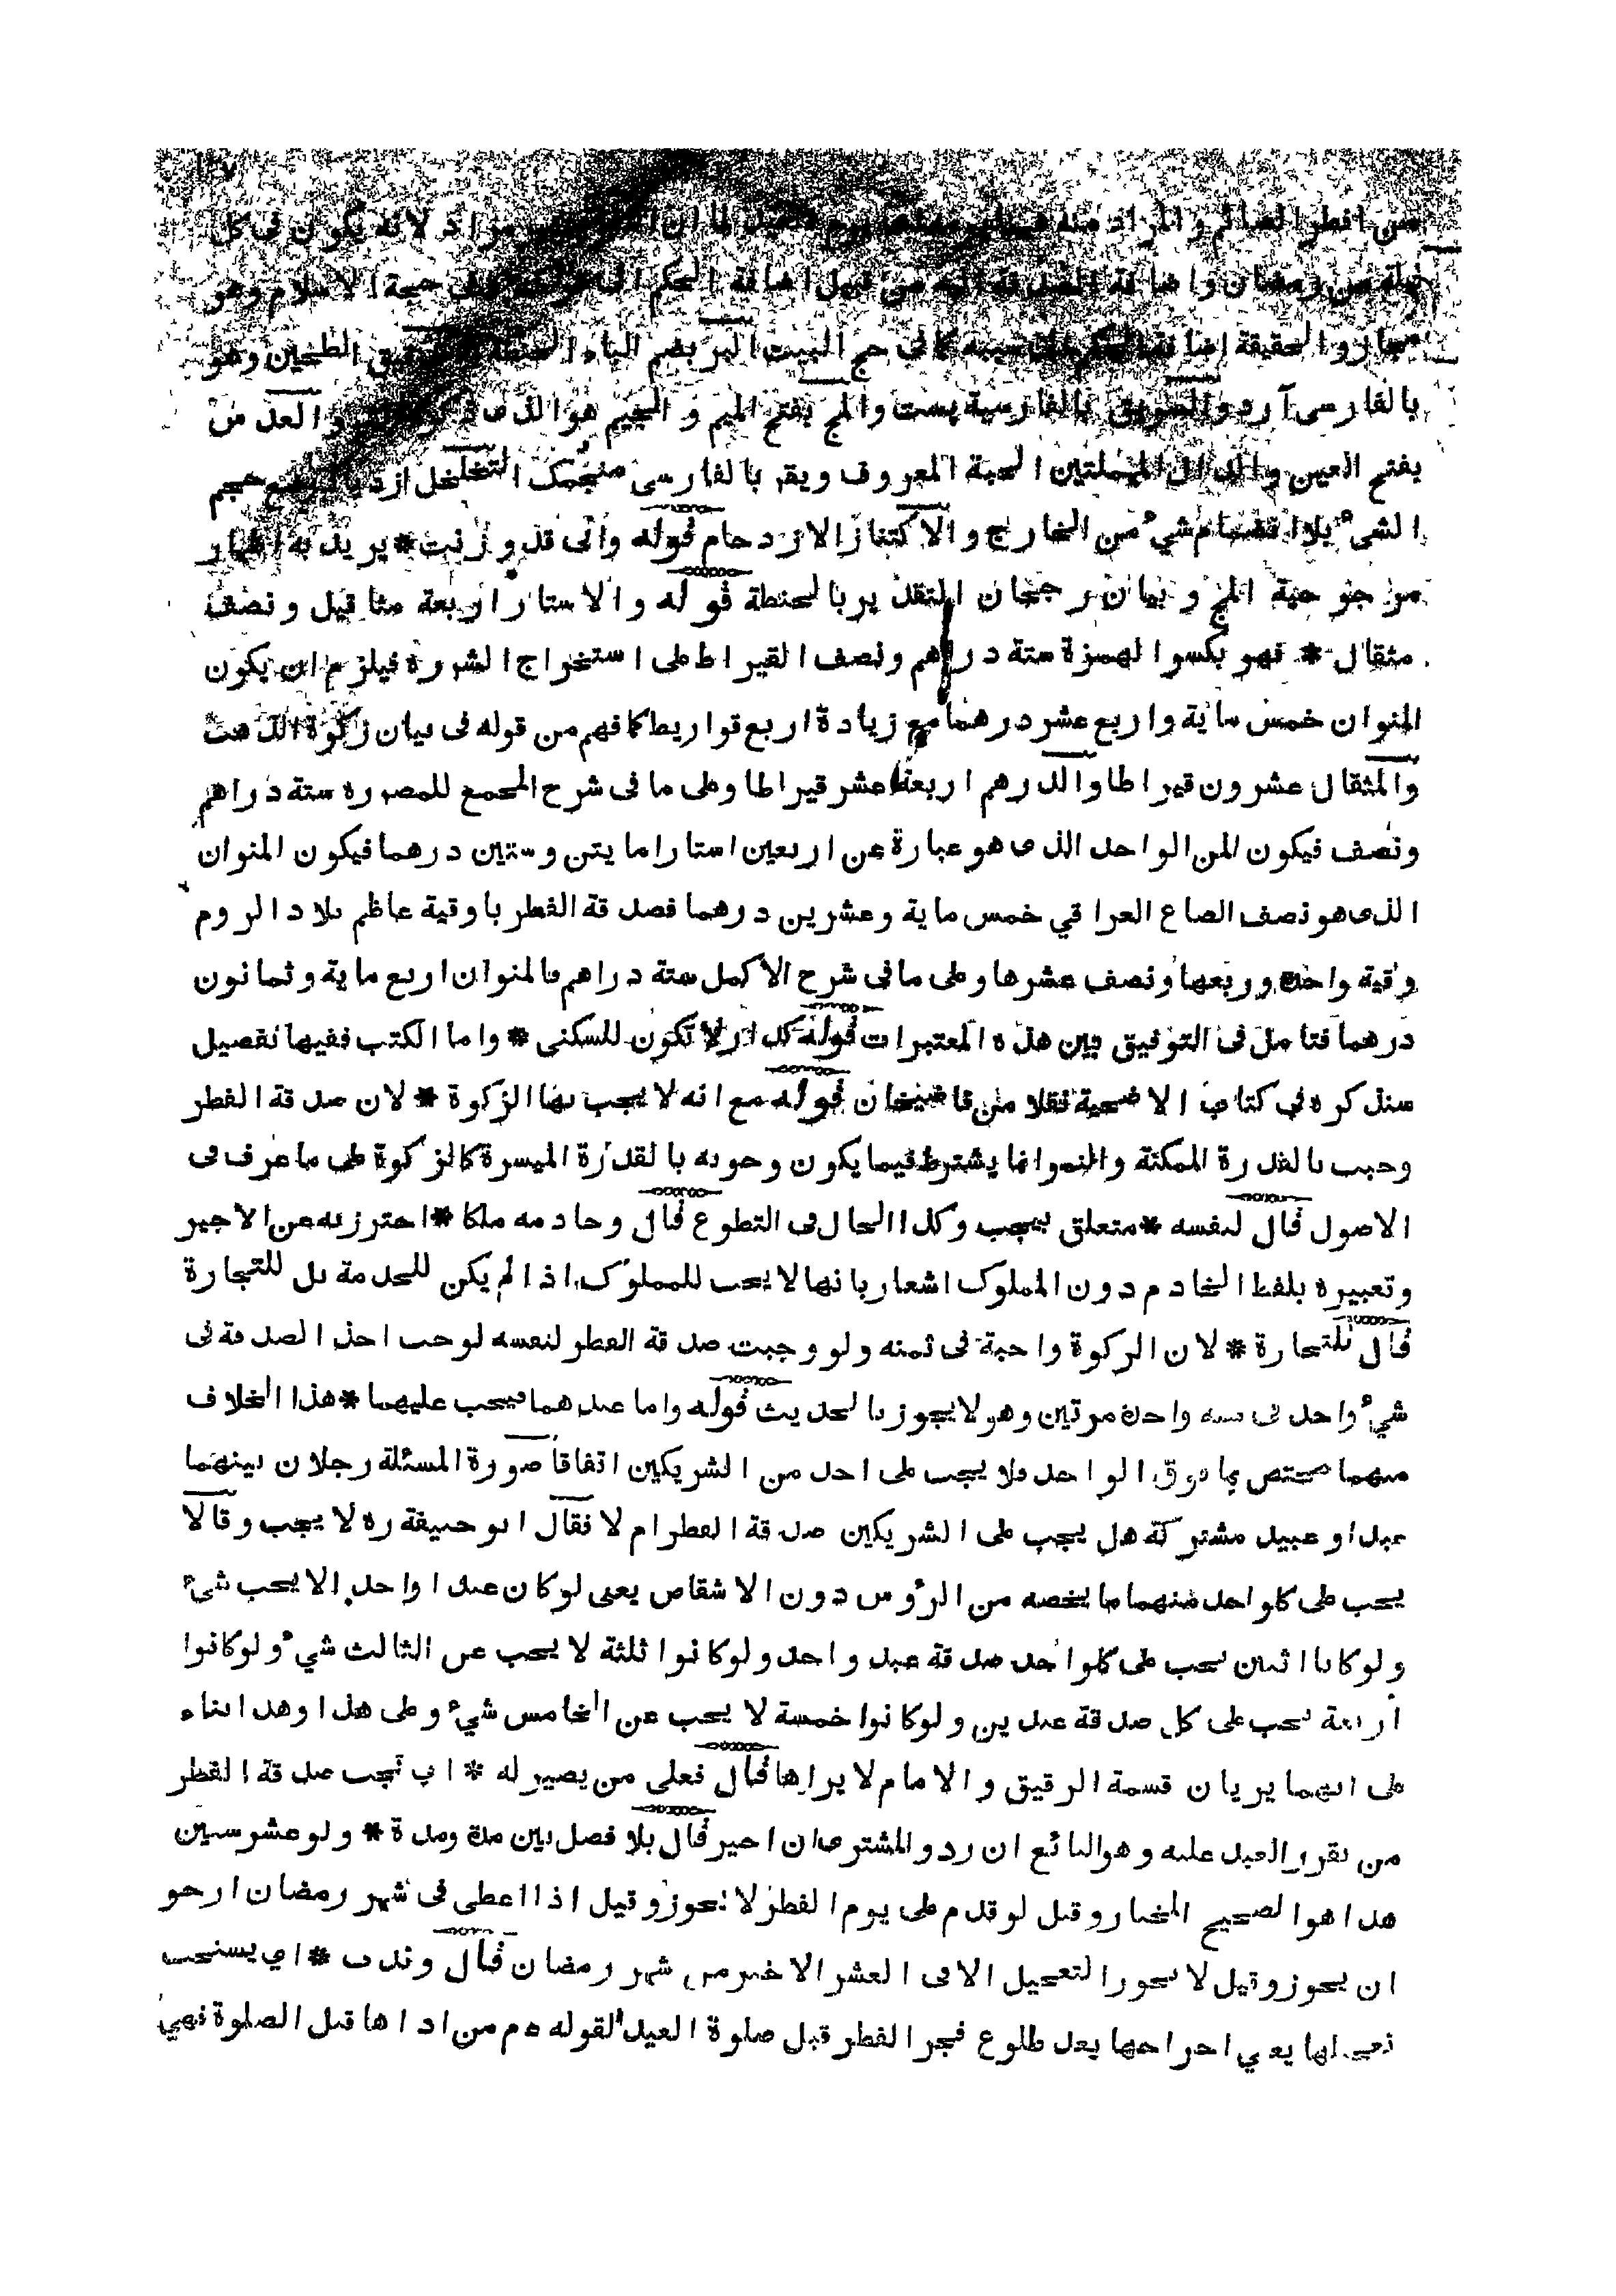 من افطر الصائم والمراد منه لما ان مراد لانه يكون فى كل
ليلة من رمضان واضافة الصدقة اليه من قبيل اضافة الحكم الى حجة الاسلام وهو
مجاز والحقيقة اضافة الحكم الى سببه كما فى حج البيت البر بضم الباء الطحين وهو
بالفارسى آرد والسويق بالفارسية پست والمج بفتح الميم و الجيم هو الذى والعدس
بفتح العين والدال المهملتين الحبة المعروف ويقر بالفارسى منجمك التخلخل ازدياد حجم
الشىء بلا انضمام شىء من الخارج والاكتناز الازدحام قوله وانى قد وزنت * يريد به اظهار
مرجوحية المج و بيان رجحان التقدير بالحنطة قوله والاستار اربعة مثاقيل ونصف
مثقال * فهو بكسر الهمزة ستة دراهم ونصف القيراط على استخراج الشررة فيلزم ان يكون
المنوان خمس ماية واربع عشر درهما مع زيادة اربع قواريط كما فهم من قوله فى بيان زكوة الذهب
والمثقال عشرون قيراطا والدرهم اربعة عشر قيراطا وعلى ما فى شرح المجمع للمصرره ستة دراهم
ونصف فيكون المن الواحد الذى هو عبارة عن اربعين استارا مايتن وستين درهما فيكون المنوان
الذى هو نصف الصاع العراقي خمس ماية وعشرين درهما فصدقة الفطر باوقية عاظم بلاد الروم
وقية واحدة وربعها ونصف عشرها وعلى ما فى شرح الاكمل ستة دراهم فالمنوان اربع ماية وثمانون
درهما فتامل فى التوفيق بين هذه المعتبرات قوله كدار لا تكون للسكنى * واما الكتب ففيها تفصيل
سنذكره فى كتاب الاضحية نقلا من قاضيخان قوله مع انه لا يجب بها الزكوة * لان صدقة الفطر
وجبت بالقدرة الممكنة والنمو انما يشترط فيما يكون وجوبه بالقدرة الميسرة كالزكوة على ما عرف فى
الاصول قال لنفسه * متعلق بيجب وكذا الحال فى التطوع قال وخادمه ملكا * احترز به عن الاجير
وتعبيره بلفظ الخادم دون المملوك اشعار بانها لا يجب للمملوك اذا لم يكن للخدمة بل للتجارة
قال للتجارة * لان الزكوة واجبة فى ثمنه ولو وجبت صدقة الفطر لنفسه لوجب اخذ الصدقة فى
شىء واحد فى سنة واحدة مرتين وهو لا يجوز بالحديث قوله واما عندهما فيجب عليهما * هذا الخلاف
منهما مختص بما فوق الواحد فلا يجب على احد من الشريكين اتفاقا صورة المسئلة رجلان بينهما
عبد او عبيد مشتركة هل يجب على الشريكين صدقة الفطر ام لا فقال ابو حنيفة ره لا يجب وقالا
يجب على كلواحد منهما ما يخصه من الرؤس دون الاشقاص يعنى لو كان عبدا واحدا لا يجب شىء
ولو كانا اثنين يجب على كلواحد صدقة عبد واحد ولو كانوا ثلثة لا يجب عن الثالث شىء ولو كانوا
اربعة يجب على كل صدقة عبدين ولو كانوا خمسة لا يجب عن الخامس شىء وعلى هذا وهذا بناء
على انهما يريان قسمة الرقيق والامام لا يراها قال فعلى من يصير له * اى تجب صدقة الفطر
من تقرر العبد عليه وهو البائع ان رد و المشترى ان اجير قال بلا فصل بين مدة ومدة * ولو عشر سنين
هذا هو الصحيح المختار وقيل لو قدم على يوم الفطر لا يجوز وقيل اذا اعطى فى شهر رمضان ارجو
ان يجوز وقيل لا يجوز التعجيل الا فى العشر الاخير من شهر رمضان قال وندب * اي يستحب
يعنى اخراجها بعد طلوع فجر الفطر قبل صلوة العيد لقوله عم من اداها قبل الصلوة فهي